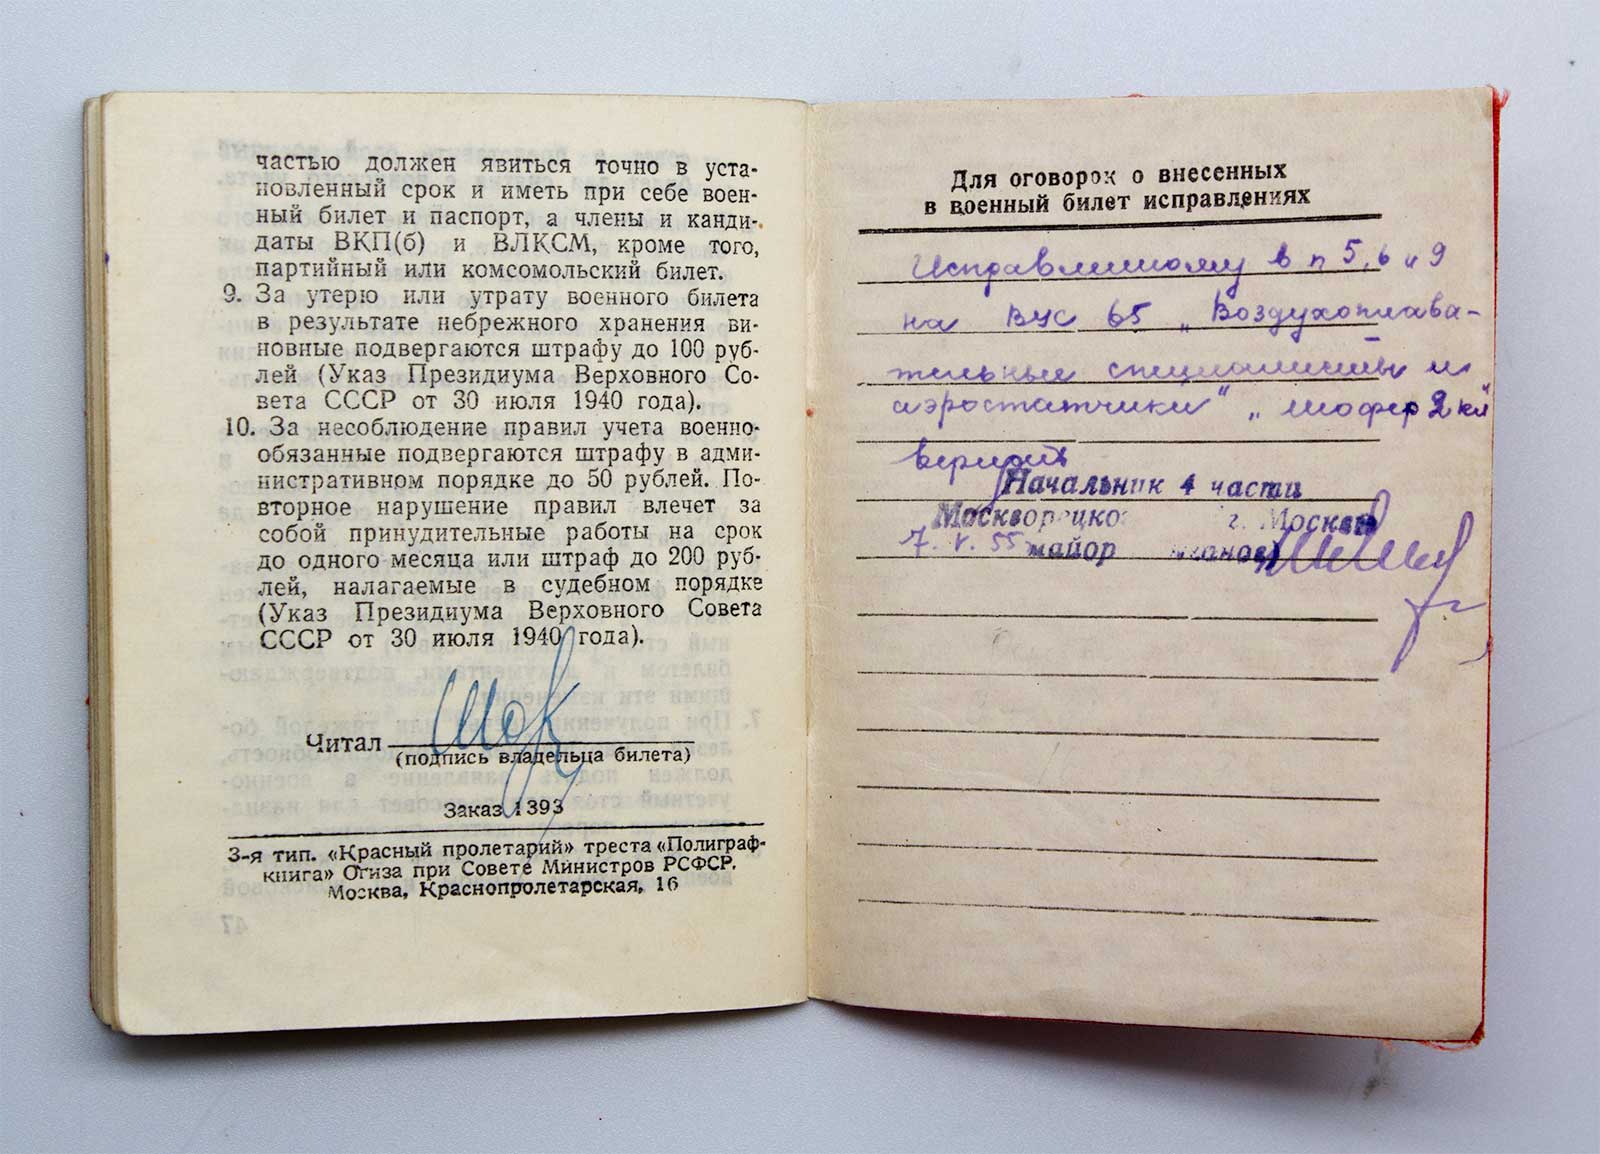 частью должен явиться точно в уста-
новленный срок и иметь при себе воен-
ный билет и паспорт, а члены и канди-
даты ВКП(б) и ВЛКСМ, кроме того,
партийный или комсомольский билет.
9. За утерю или утрату военного билета
в результате небрежного хранения ви-
новные подвергаются штрафу до 100 руб-
лей (Указ Президиума Верховного Со-
вета СССР от 30 июля 1940 года).
10. За несоблюдение правил учета военно-
обязанные подвергаются штрафу в адми-
нистративном порядке до 50 рублей. По-
вторное нарушение правил влечет за
собой принудительные работы на срок
до одного месяца или штраф до 200 руб-
лей, налагаемые в судебном порядке
(Указ Президиума Верховного Совета
СССР от 30 июля 1940 года).
Читал
(подпись владельца билета)
Заказ 1393
3-я тип. «Красный пролетарий» треста «Полиграф-
книга» Огиза при Совете Министров РСФСР.
Москва, Краснопролетарская, 16
Для оговорок о внесенных
в военный билет исправлениях
Исправленному в п 5, 6 и 9
на ВУС 65 „Воздухоплава-
тельные специалисты и
аэростатчики" „шофер 2 кл"
верить
Начальник 4 части
Москворецко г. Москвы
7.V.55 майор